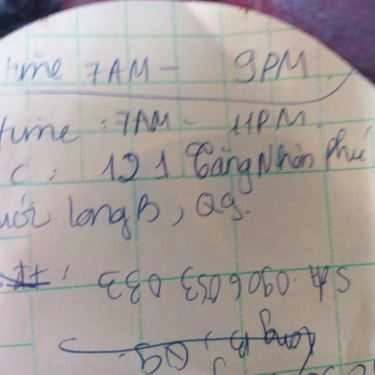 time 7AM - 9PM
time : 7AM - 11PM.
C : 121 Tăng Nhơn Phú
Long B, Q9.
Sđt : 0906053 033
Long B, Q9.